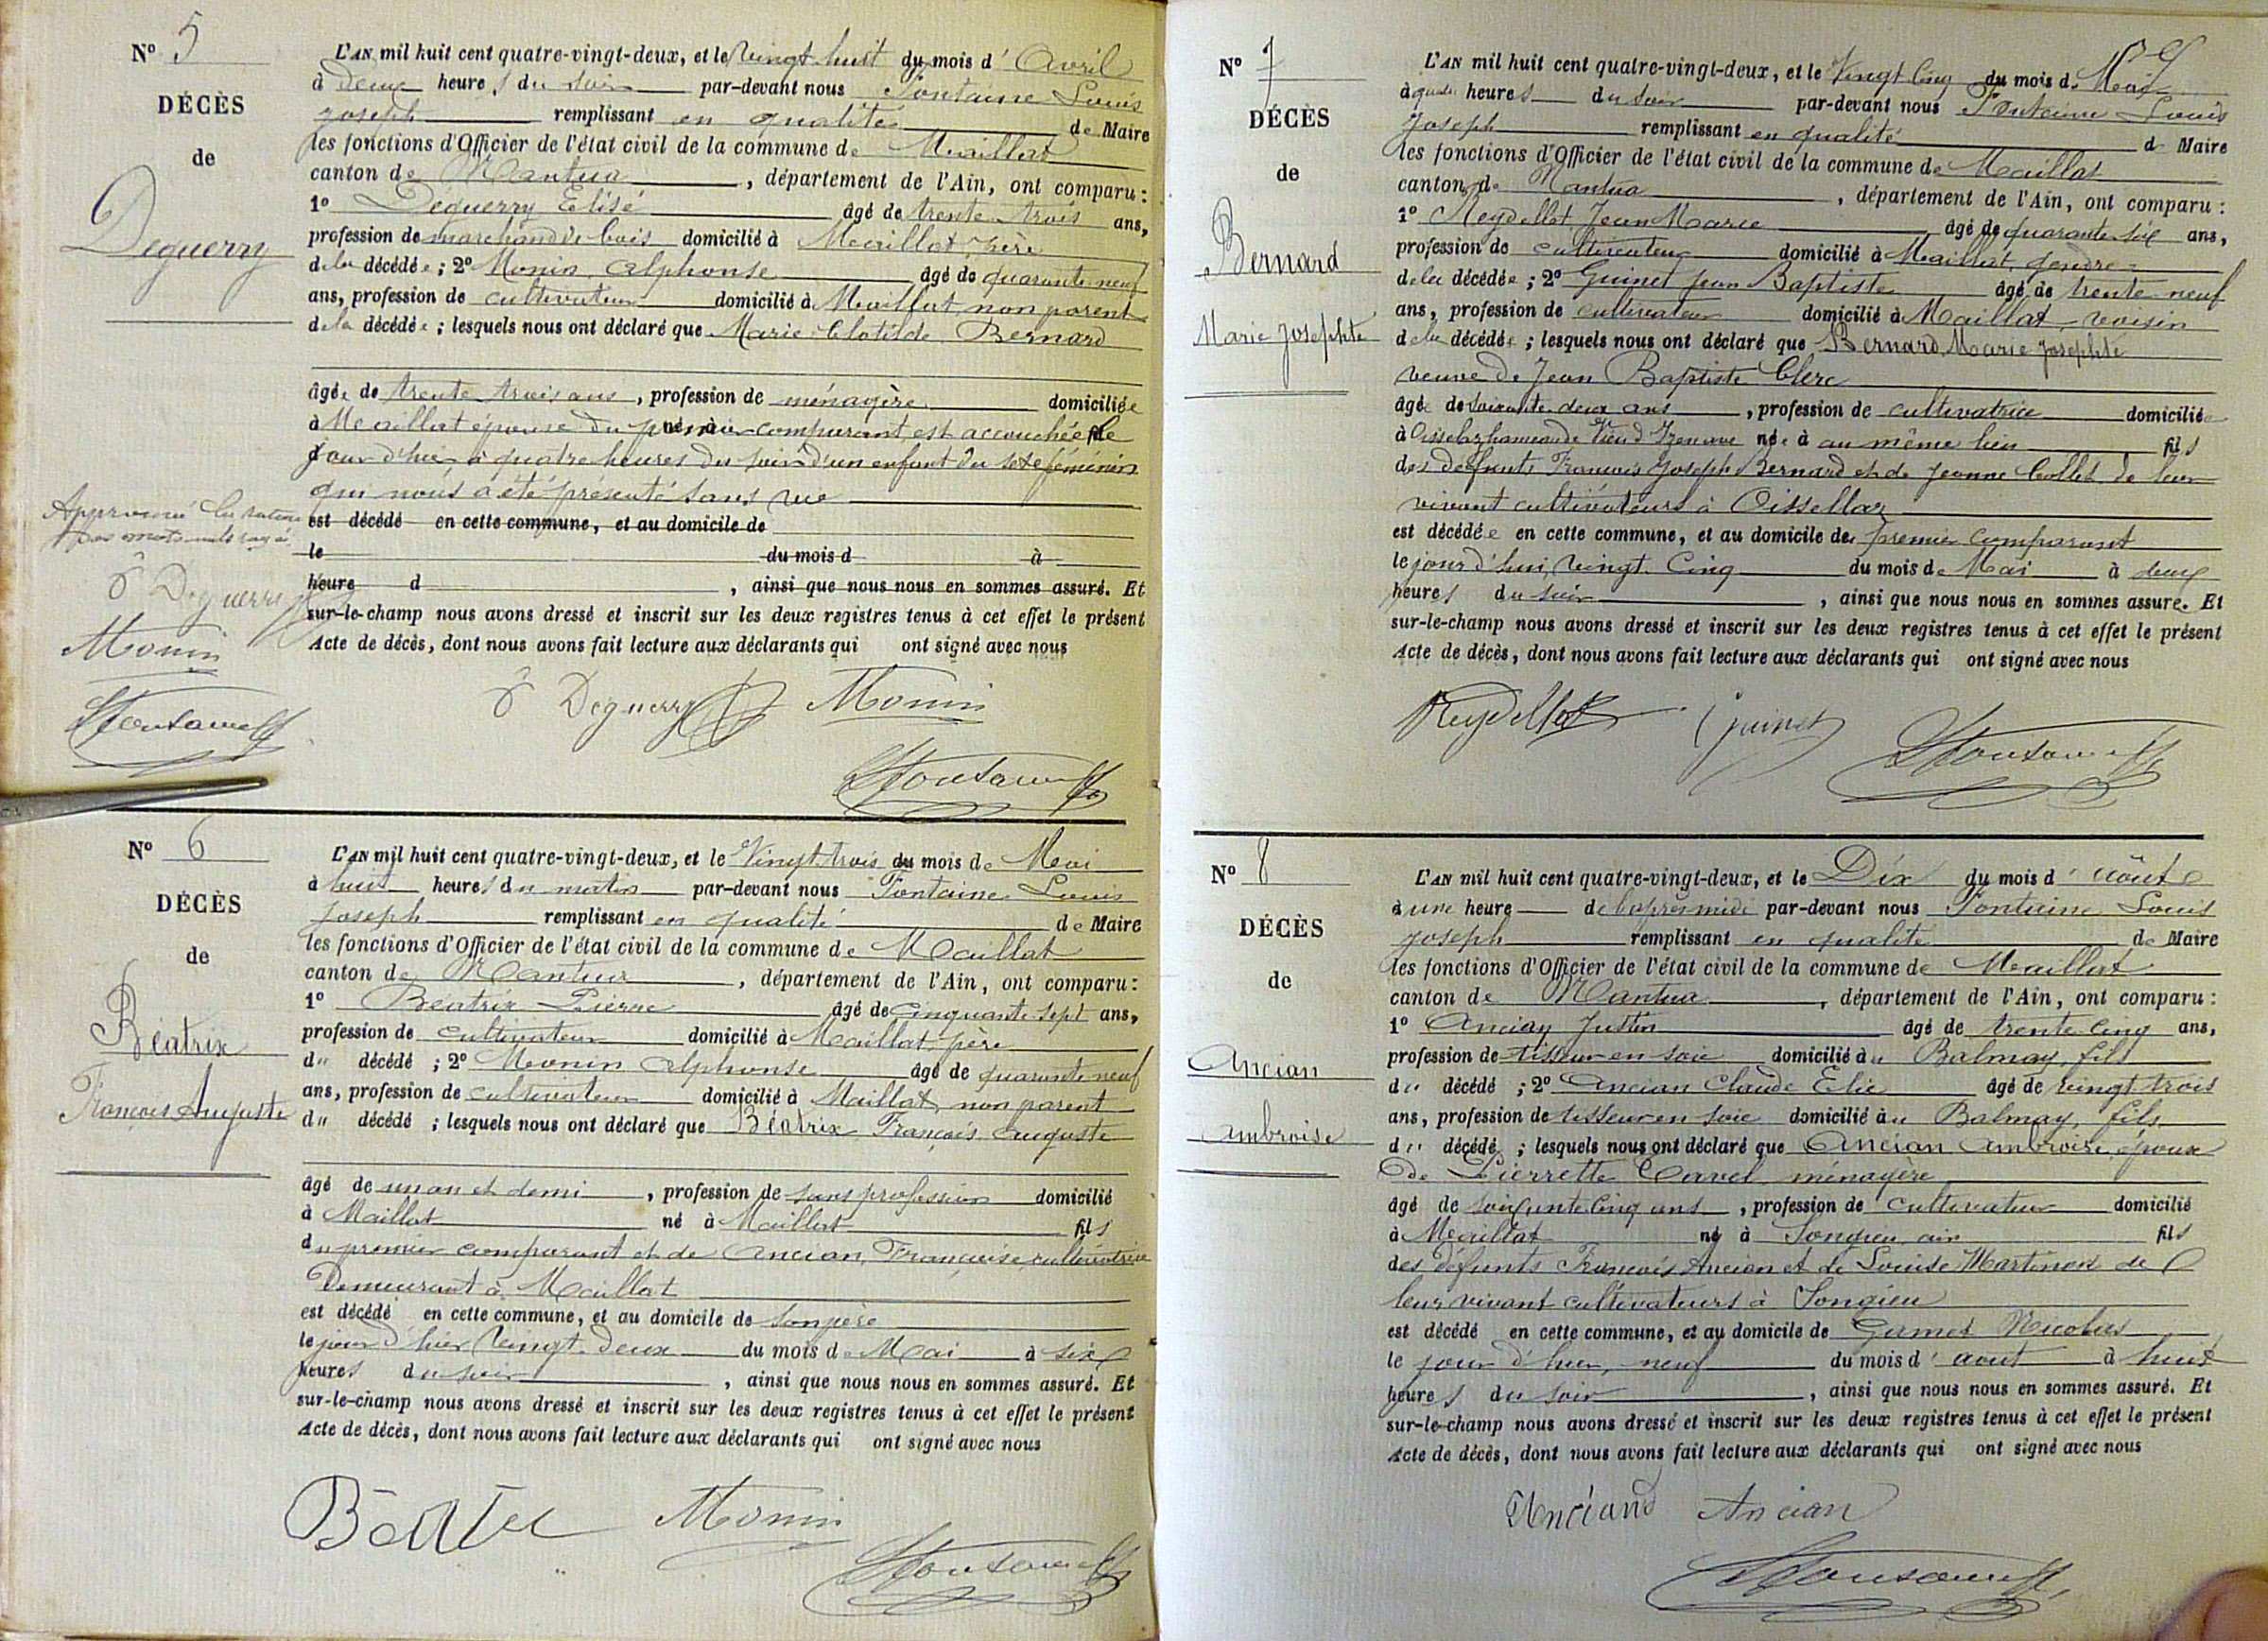 N° 5
DÉCÈS
de
Deguerry
L'AN mil huit cent quatre-vingt-deux, et le vingt huit du mois d' Avril
à deux heures du soir par-devant nous Fontaine Louis
joseph remplissant en qualité de Maire
les fonctions d'Officier de l'état civil de la commune de Maillat
canton de Mantua, département de l'Ain, ont comparu :
1° Déguerry Elisé âgé de trente trois ans,
profession de marchand de bois domicilié à Maillat, père
de la décédée ; 2° Monin Alphonse âgé de quarante neuf
ans, profession de cultivateur domicilié à Maillat non parent
de la décédée ; lesquels nous ont déclaré que Marie Clotilde Bernard
âgée de trente trois ans, profession de ménagère domiciliée
à Maillat épouse du premier comparant, est accouchée le
jour d'hier à quatre heures du soir d'un enfant du sexe féminin
qui nous a été présenté sans vie
est décédé en cette commune, et au domicile de
le du mois d à
heure d , ainsi que nous nous en sommes assuré. Et
sur-le-champ nous avons dressé et inscrit sur les deux registres tenus à cet effet le présent
Acte de décès, dont nous avons fait lecture aux déclarants qui ont signé avec nous
Approuvé
mots nuls
E Deguerry
Monin
LFontaine
E Deguerry Monin
LFontaine
N° 6
DÉCÈS
de
Béatrix
François Auguste
L'AN mil huit cent quatre-vingt-deux, et le Vingt trois du mois de Mai
à huit heures du matin par-devant nous Fontaine Louis
joseph remplissant en qualité de Maire
les fonctions d'Officier de l'état civil de la commune de Maillat
canton de Mantua, département de l'Ain, ont comparu :
1° Béatrix Pierre âgé de cinquante sept ans,
profession de cultivateur domicilié à Maillat, père
du décédé ; 2° Monin Alphonse âgé de quarante neuf
ans, profession de cultivateur domicilié à Maillat, non parent
du décédé ; lesquels nous ont déclaré que Béatrix François Auguste
âgé de un an et demi, profession de sans profession domicilié
à Maillat né à Maillat fils
du premier comparant et de Ancian, Françoise cultivatrice
Demeurant à Maillat
est décédé en cette commune, et au domicile de son père
le jour d'hier Vingt deux du mois de Mai à six
heures du soir, ainsi que nous nous en sommes assuré. Et
sur-le-champ nous avons dressé et inscrit sur les deux registres tenus à cet effet le présent
Acte de décès, dont nous avons fait lecture aux déclarants qui ont signé avec nous
Monin
LFontaine
N° 7
DÉCÈS
de
Bernard
Marie Josephte
L'AN mil huit cent quatre-vingt-deux, et le Vingt Cinq du mois de Mai
à quatre heures du soir par-devant nous Fontaine Louis
joseph remplissant en qualité d Maire
les fonctions d'Officier de l'état civil de la commune de Maillat
canton de Mantua, département de l'Ain, ont comparu :
1° Reydellet Jean Marie âgé de quarante six ans,
profession de cultivateur domicilié à Maillat, gendre
de la décédée ; 2° Guinet jean Baptiste âgé de trente neuf
ans, profession de cultivateur domicilié à Maillat, voisin
de la décédée ; lesquels nous ont déclaré que Bernard Marie Josephte
veuve de Jean Baptiste Clerc
âgée de soixante deux ans, profession de cultivatrice domiciliée
à hameau de Vieu d'Izenave née à au même lieu fils
des défunts François Joseph Bernard et de Jeanne Collet de leur
vivant cultivateurs à Oissellaz
est décédée en cette commune, et au domicile de premier comparant
le jour d'hui, Vingt Cinq du mois de Mai à deux
heures du soir, ainsi que nous nous en sommes assuré. Et
sur-le-champ nous avons dressé et inscrit sur les deux registres tenus à cet effet le présent
Acte de décès, dont nous avons fait lecture aux déclarants qui ont signé avec nous
Reydellet guinet
LFontaine
N° 8
DÉCÈS
de
Ancian
Ambroise
L'AN mil huit cent quatre-vingt-deux, et le Dix du mois d' août
à une heure de l'après-midi par-devant nous Fontaine Louis
joseph remplissant en qualité de Maire
les fonctions d'Officier de l'état civil de la commune de Maillat
canton de Mantua, département de l'Ain, ont comparu :
1° Ancian Justin âgé de trente cinq ans,
profession de tisseur en soie domicilié au Balmay, fils
du décédé ; 2° Ancian Claude Elie âgé de vingt trois
ans, profession de tisseur en soie domicilié au Balmay, fils
du décédé ; lesquels nous ont déclaré que Ancian Ambroise, époux
de Pierrette Cavel ménagère
âgé de soixante cinq ans, profession de cultivateur domicilié
à Maillat né à Songieu, ain fils
des défunts François Ancian et de Louise Martinod de
leur vivant cultivateurs à Songieu
est décédé en cette commune, et au domicile de Nicolas
le jour d'hier, neuf du mois d' aout à huit
heures du soir, ainsi que nous nous en sommes assuré. Et
sur-le-champ nous avons dressé et inscrit sur les deux registres tenus à cet effet le présent
Acte de décès, dont nous avons fait lecture aux déclarants qui ont signé avec nous
Ancian Ancian
LFontaine